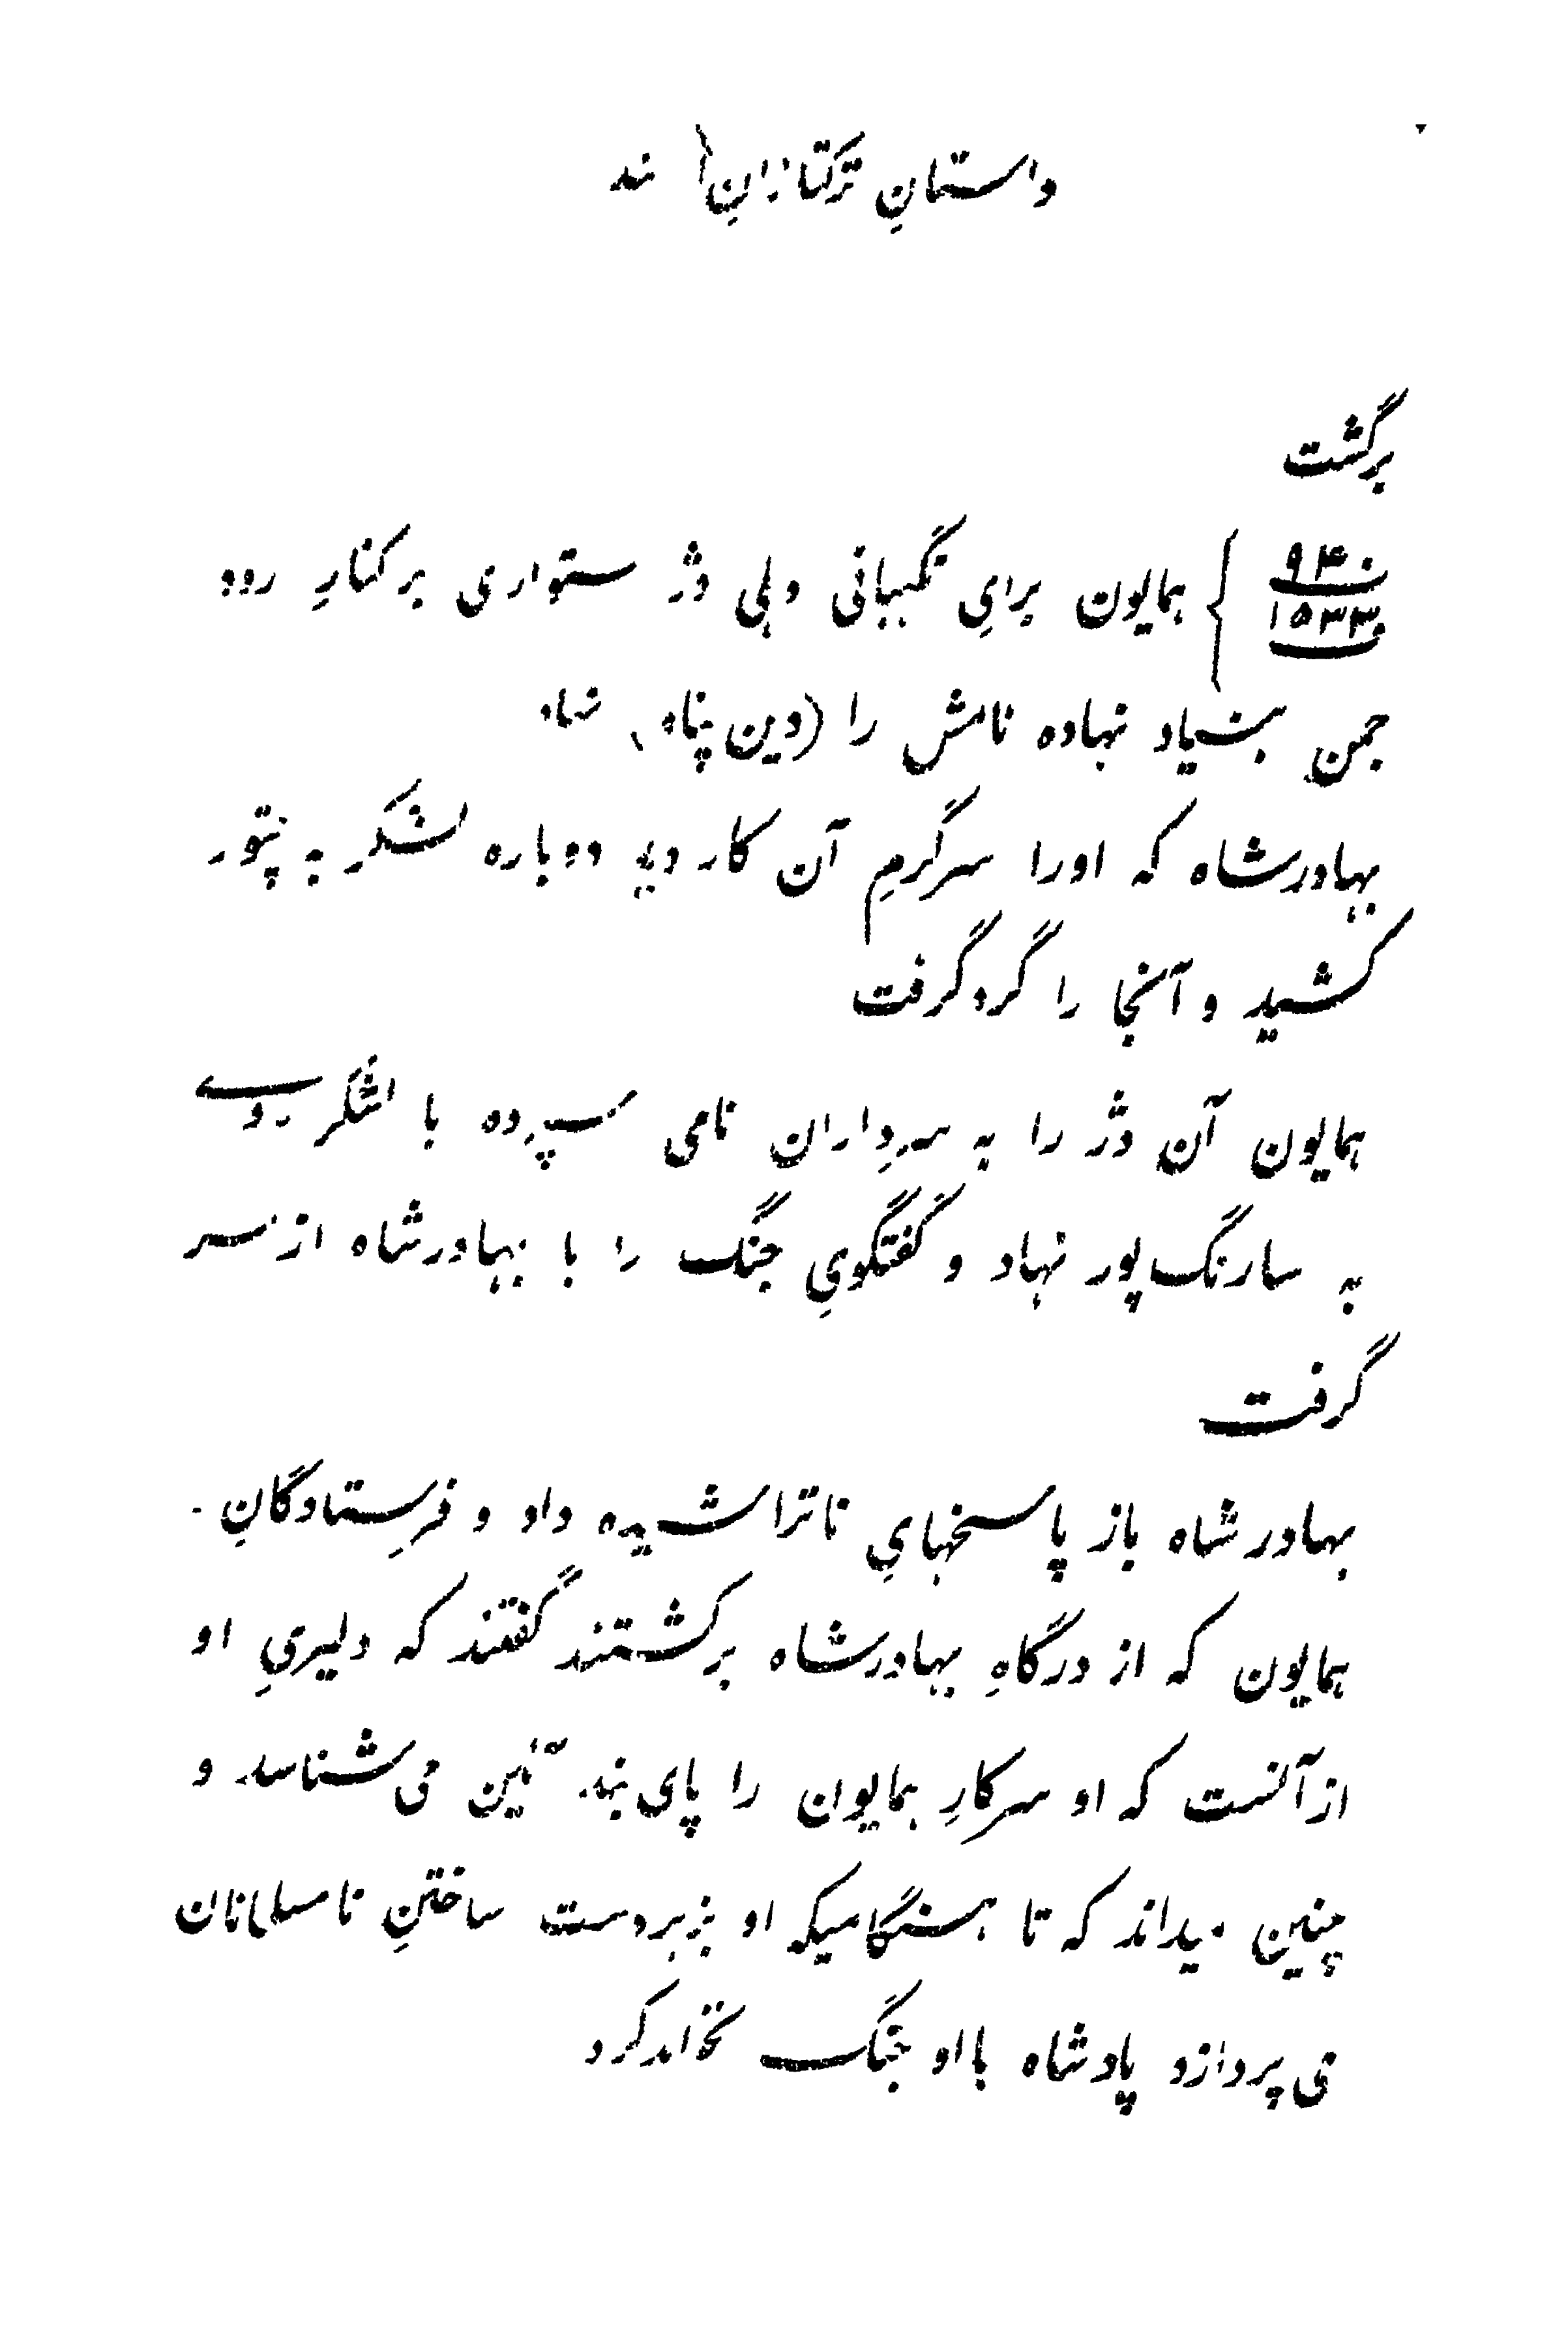 داستانِ ترکتازانِ هند
برگشت
۹۴۰ } همایون برایِ نگهبانی دهلی دژ ستواری بر کنارِ رود
۱۵۳۳
جمن بنیاد نهاده نامش را (دین پناه) نهاد
بهادرشاه که اورا سرگرمِ آن کار دید دوباره لشکر به چتور
کشید و آنجا را گرد گرفت
همایون آن دژ را به سرداران نامی سپرده با لشکر روے
به سارنگ پور نهاد و گفتگویِ جنگ را با بهادرشاه از سر
گرفت
بهادر شاه باز پاسخهایِ ناتراشیده داد و فرِستادگانِ
همایون که از درگاهِ بهادرشاه برگشتند گفتند که دلیریِ او
از آنست که او سرکارِ همایون را پای بند آئین می شناسد و
چنین میداند که تا هنگامیکه او بزبردست ساختنِ نامسلمانان
می پردازد پادشاه با او جنگ نخواهد کرد